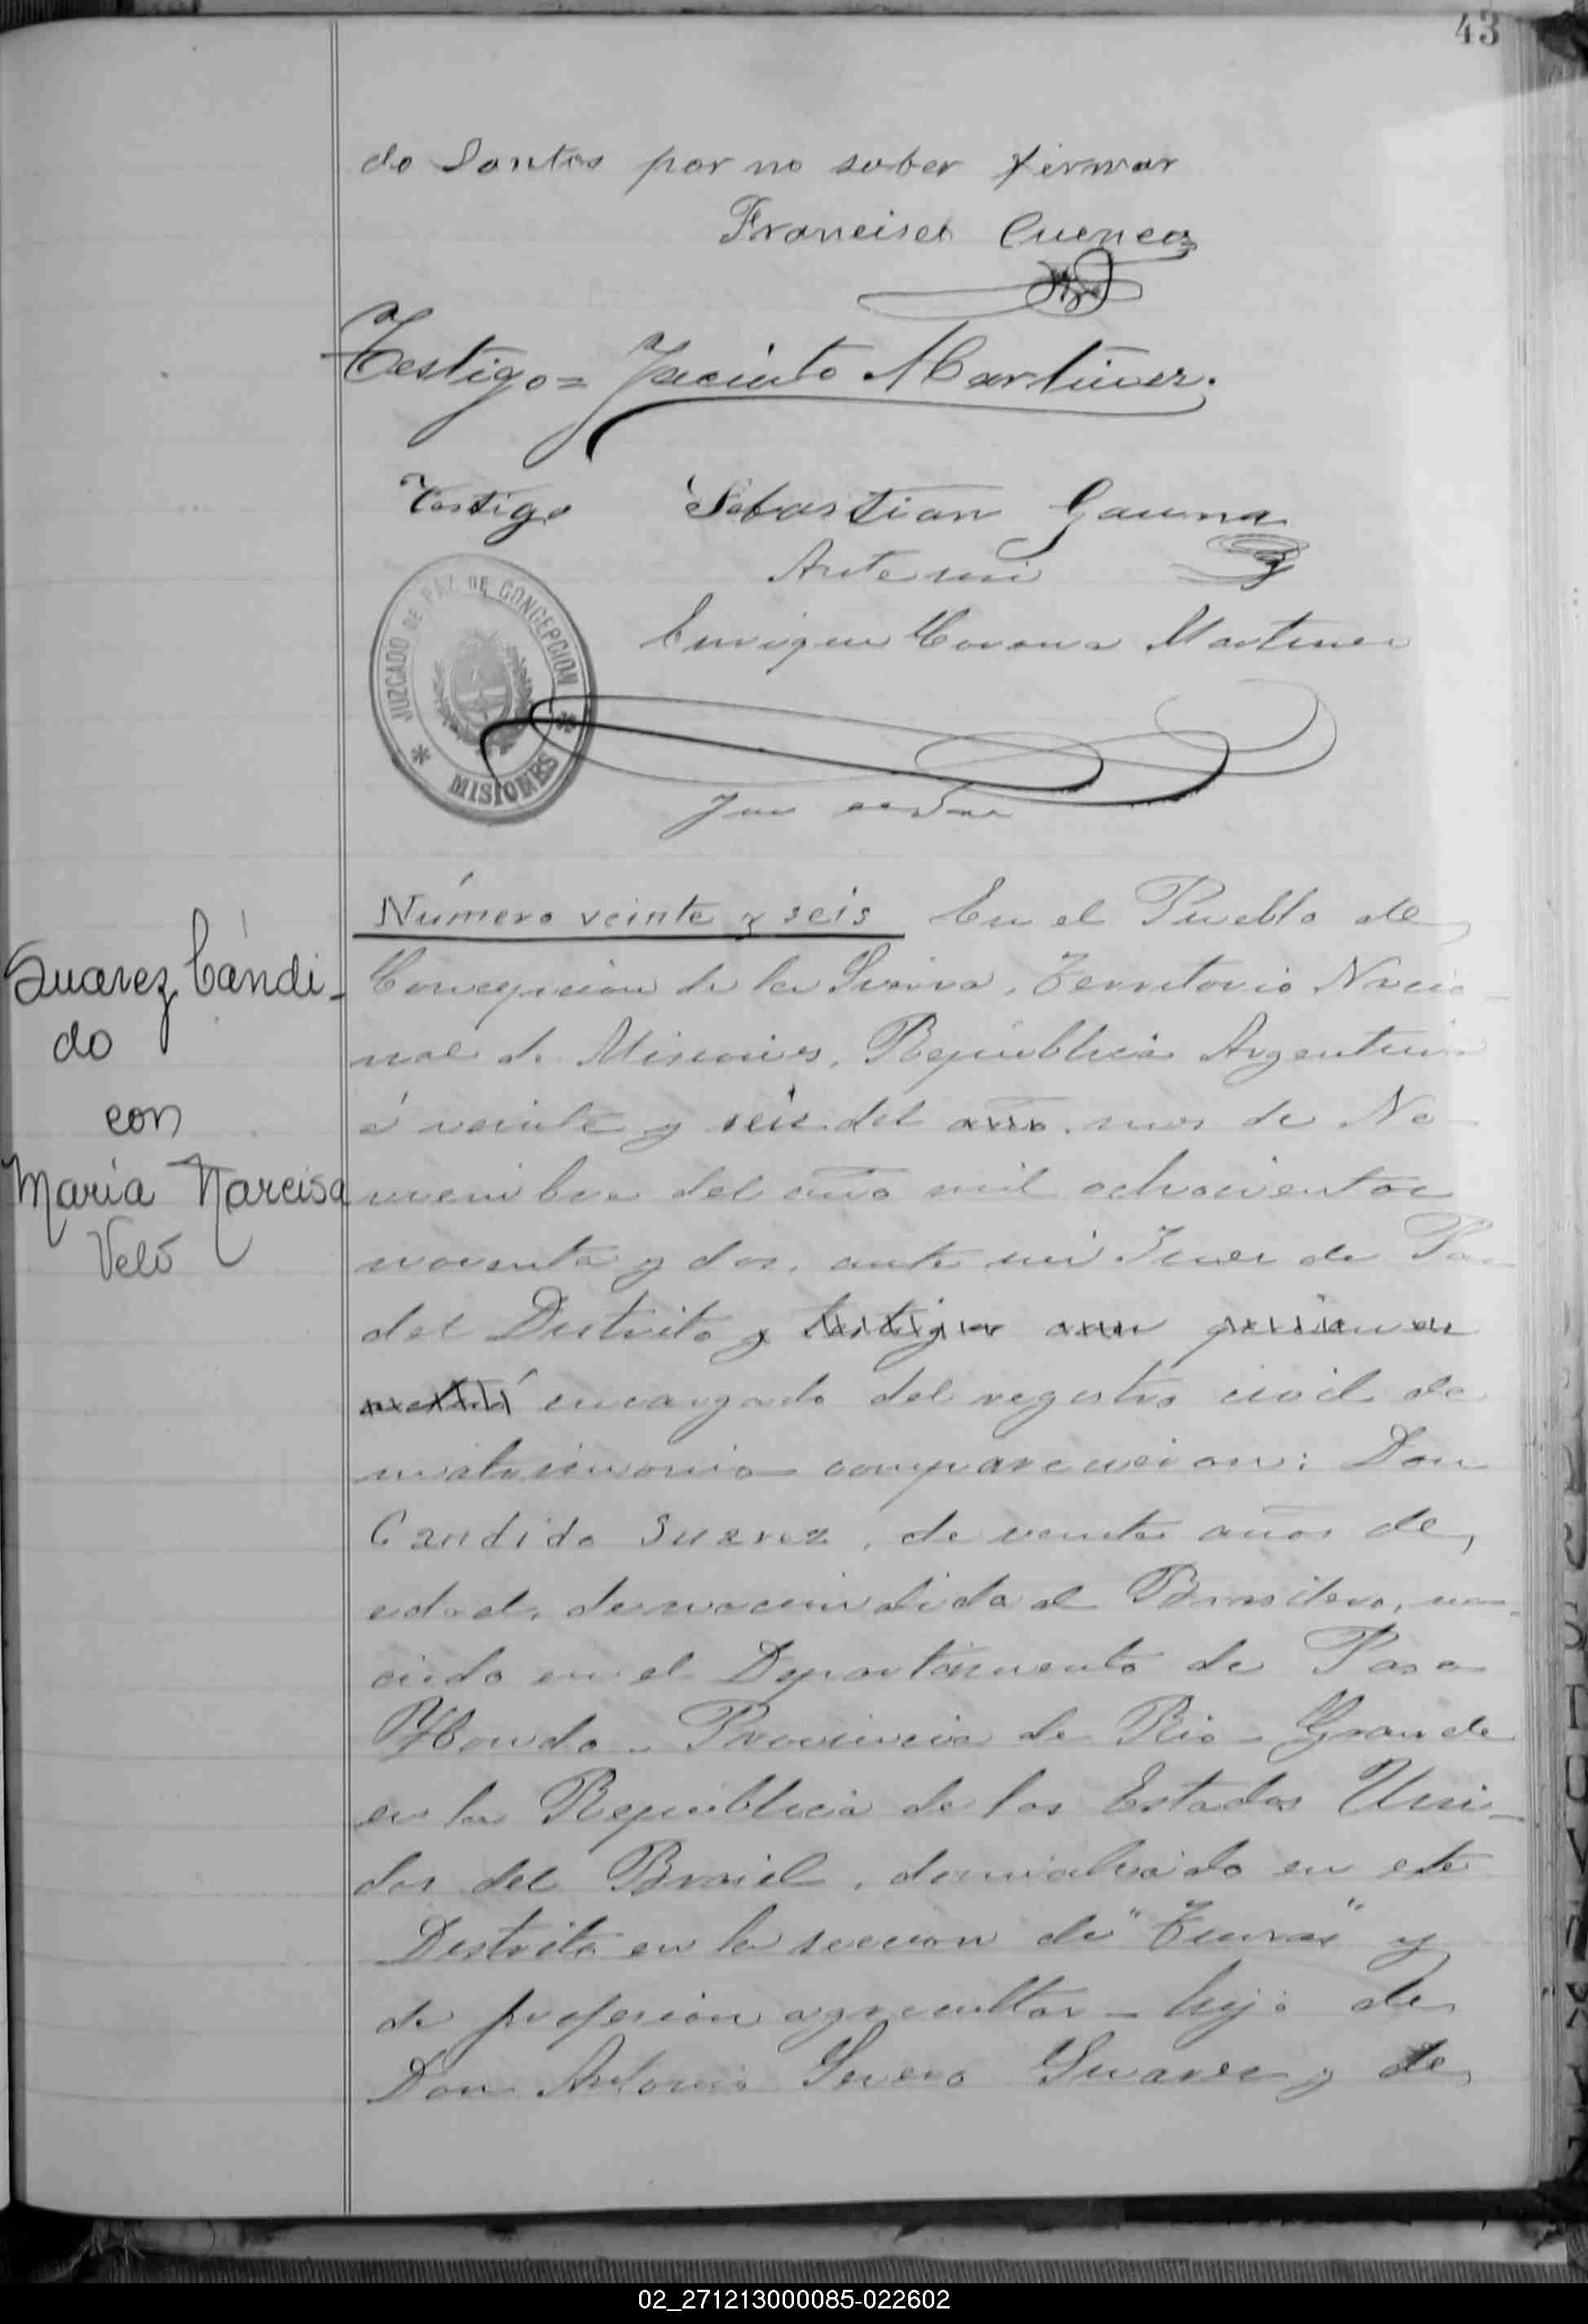 43
do Santos por no saber firmar
Francisco Cuenca
Testigo = Jacinto Martinez.
Testigo Sebastian Gauna
Ante mi
Enrique Corona Martinez
JUZGADO DE PAZ DE CONCEPCION
* MISIONES *
Juez de Paz
Suarez Cándi-
do
con
María Narcisa
Veló
Número veinte y seis En el Pueblo de
Concepcion de la Sierra, Territorio Nacio-
nal de Misiones, República Argentina
á veinte y seis del año mes de No-
viembre del año mil ochocientos
noventa y dos, ante mi Juez de Paz
del Distrito y testigos que
encargado del registro civil de
matrimonio comparecieron: Don
Candido Suarez, de veinte años de
edad, de nacionalidad Brasilero, na-
cido en el Departamento de Paso
Hondo - Provincia de Rio - Grande
en la República de los Estados Uni-
dos del Brasil, domiciliado en este
Distrito en la seccion de "Tunas" y
de profesion agricultor - hijo de
Don Antonio Suarez y de
02_271213000085-022602